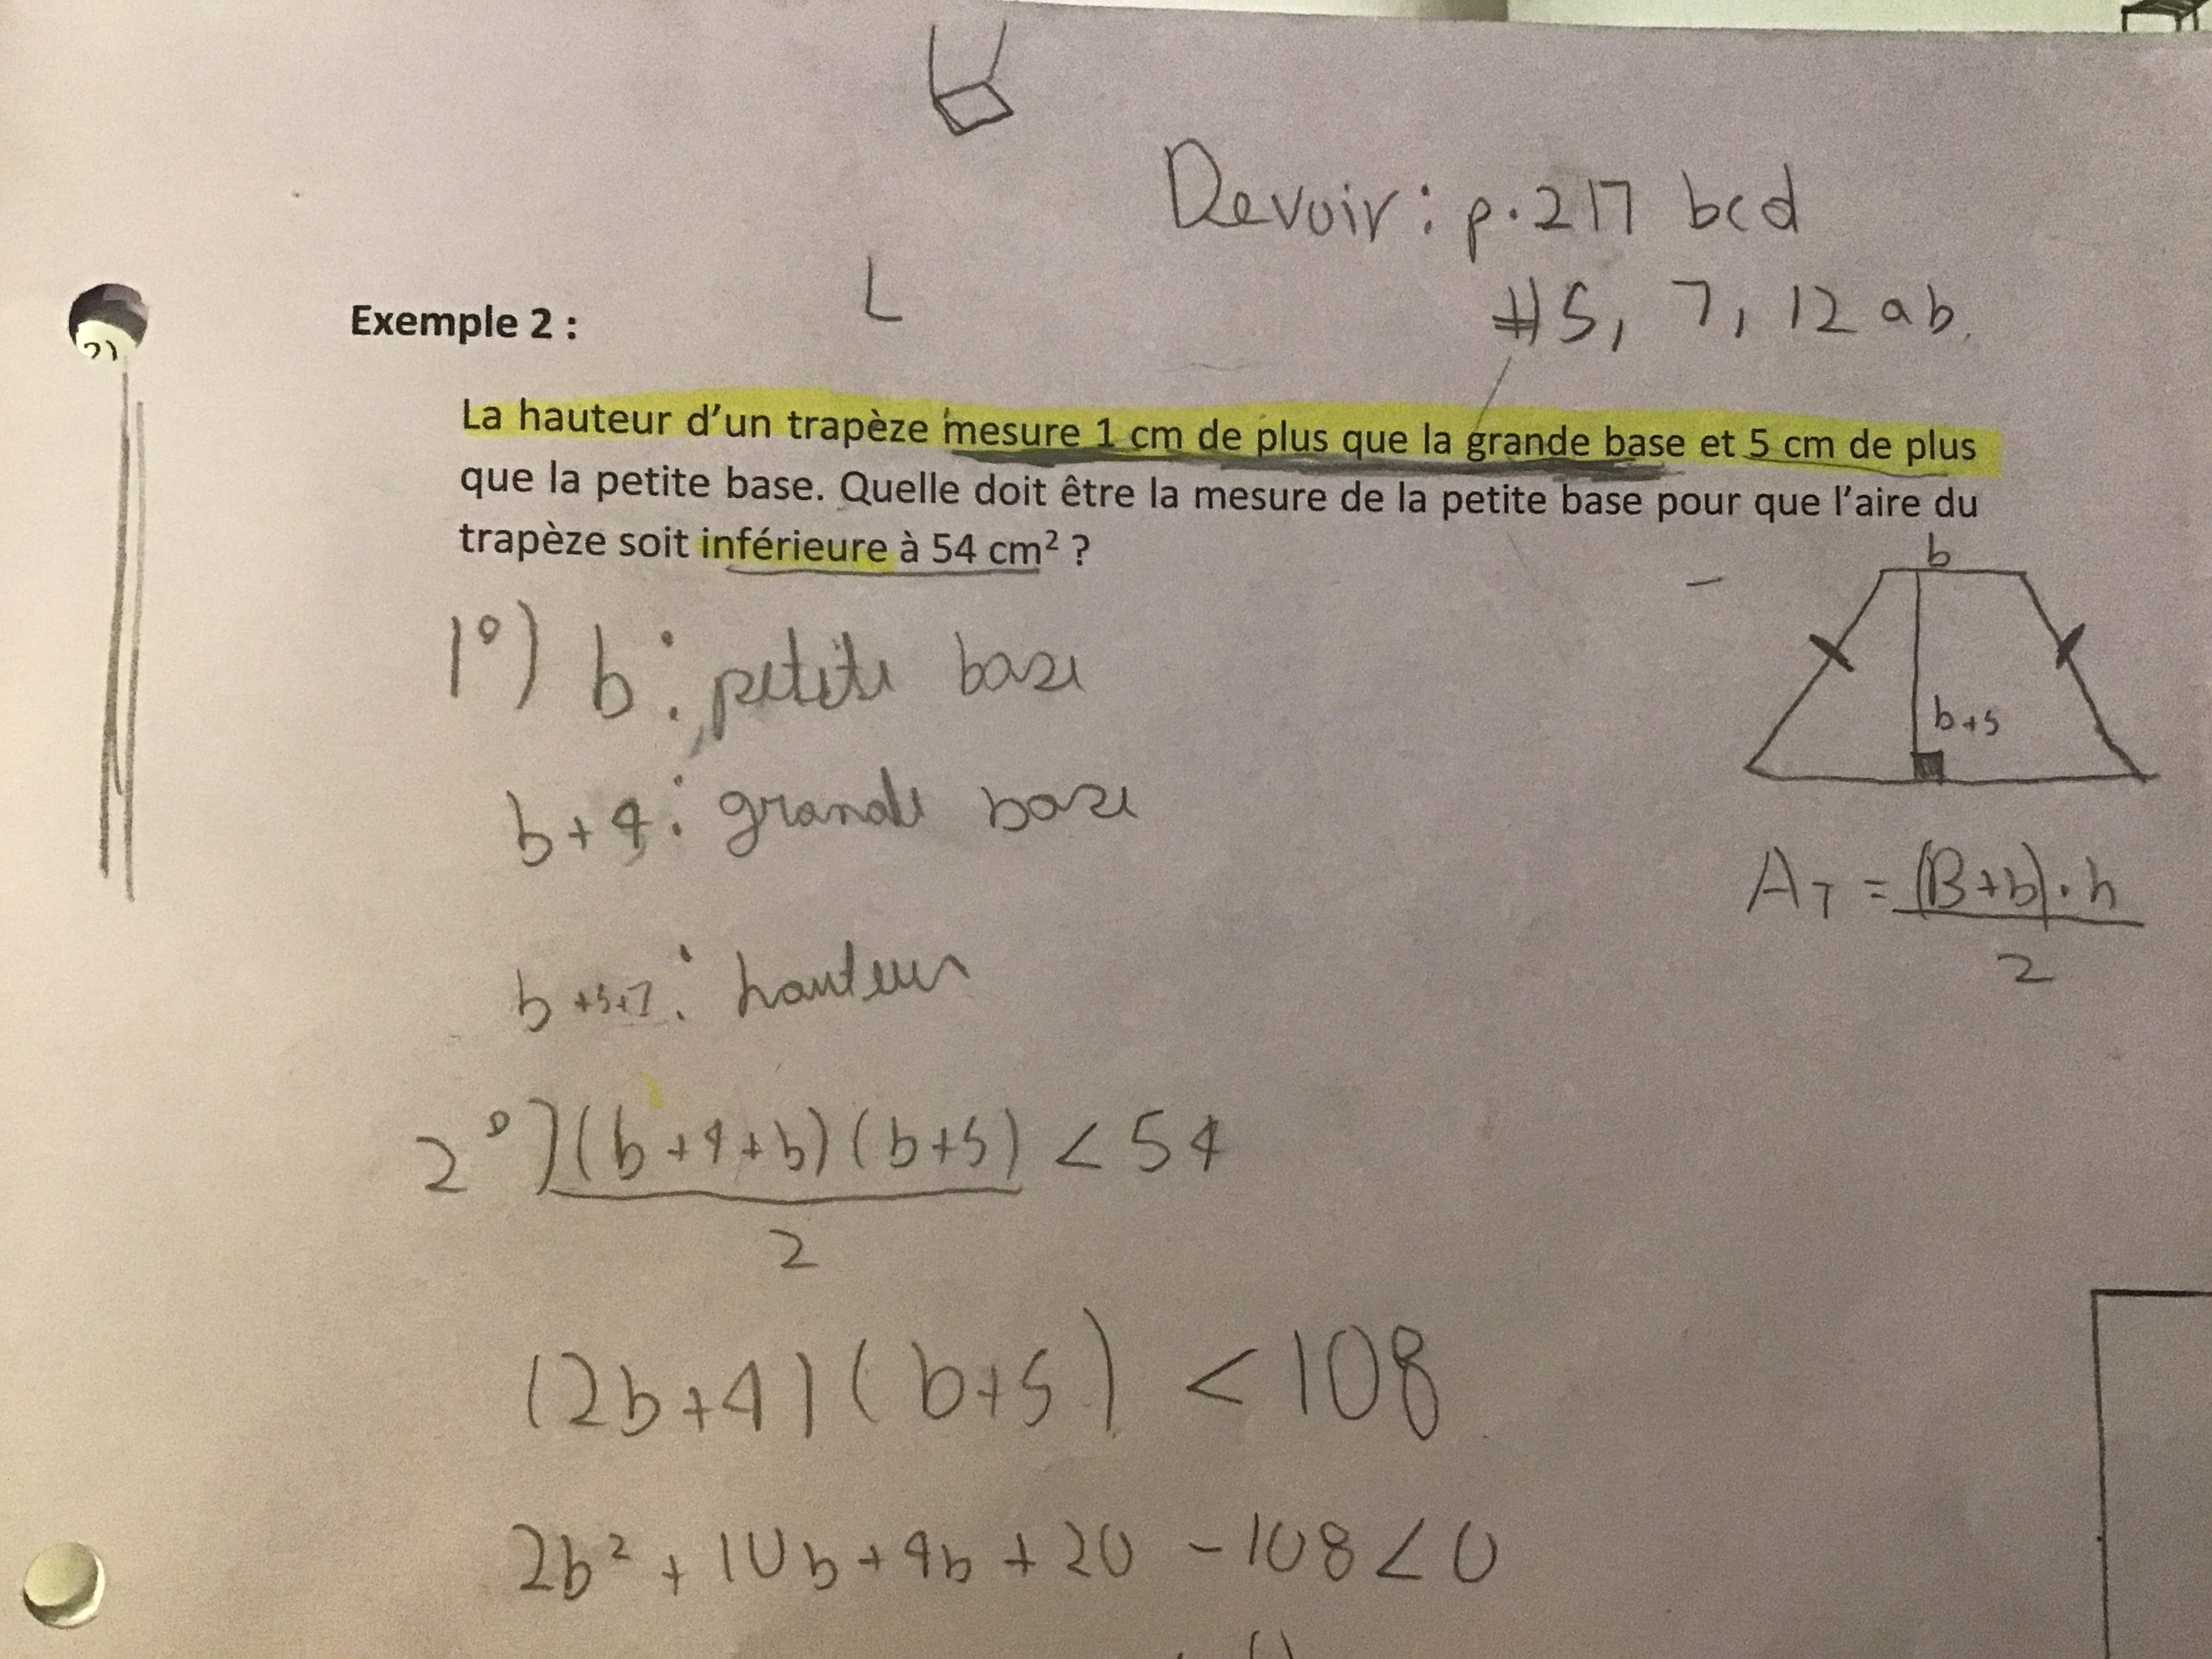 Devoir : p.217 bcd
#5, 7, 12 ab.
L
Exemple 2 :
La hauteur d'un trapèze mesure 1 cm de plus que la grande base et 5 cm de plus
que la petite base. Quelle doit être la mesure de la petite base pour que l'aire du
trapèze soit inférieure à 54 cm² ?
b
b+5
A_T = (B+b)·h
2
1°) b : petite base
b+4 : grande base
b : hauteur
2°) (b+4+b)(b+5) < 54
2
(2b+4)(b+5) < 108
2b² + 10b + 4b + 20 - 108 < 0